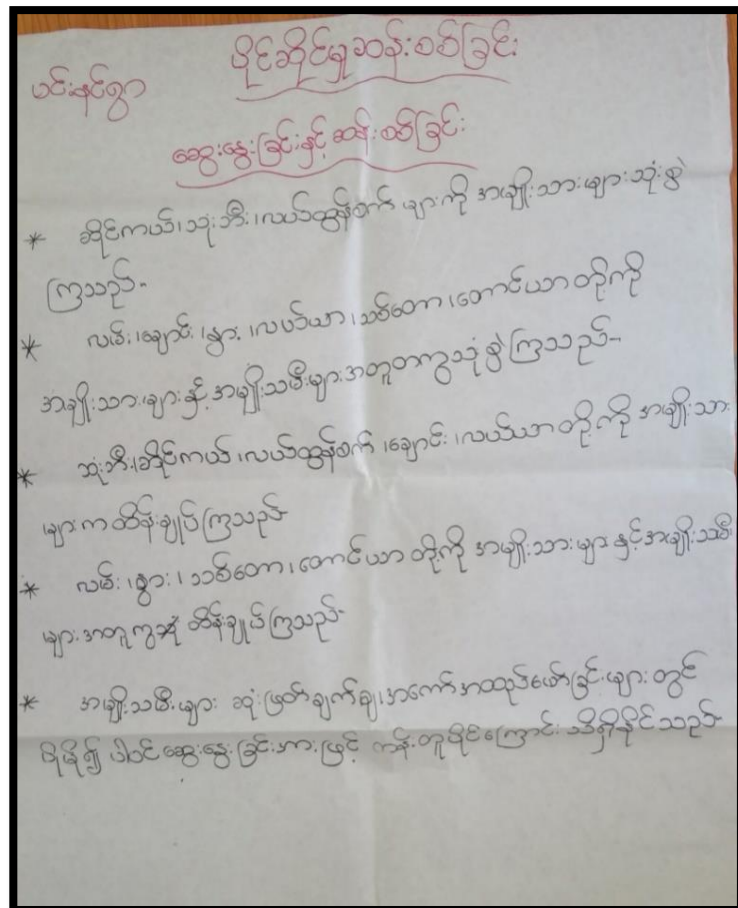 ပိုင်ဆိုင်မှုဆန်းစစ်ခြင်း
ပင်းနင်ရွာ
ဆွေးနွေးခြင်းနှင့်ဆန်းစစ်ခြင်း
* ဆိုင်ကယ်၊သုံးဘီး၊လယ်ထွန်စက် များကို အမျိုးသားများသုံးစွဲ
ကြသည်။
* လမ်း၊ချောင်း၊နွား၊လယ်ယာ၊သစ်တော၊တောင်ယာ တို့ကို
အမျိုးသားများနှင့်အမျိုးသမီးများအတူတကွသုံးစွဲကြသည်။
* သုံးဘီး၊ဆိုင်ကယ်၊လယ်ထွန်စက်၊ချောင်း၊လယ်ယာ တို့ကို အမျိုးသား
များကထိန်းချုပ်ကြသည်
* လမ်း၊နွား၊သစ်တော၊တောင်ယာ တို့ကို အမျိုးသားများနှင့်အမျိုးသမီး
များအတူကွ ထိန်းချုပ်ကြသည်။
* အမျိုးသမီးများ ဆုံးဖြတ်ချက်ချ၊အကောင်အထည်ဖော်ခြင်းများတွင်
ပိုမို၍ ပါဝင်ဆွေးနွေးခြင်းအားဖြင့် တန်းတူပိုင်ကြောင်း သိရှိနိုင်သည်။